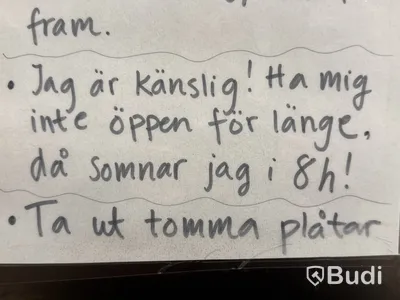 fram.
• Jag är känslig! Ha mig
inte öppen för länge,
då somnar jag i 8h!
• Ta ut tomma plåtar
Budi